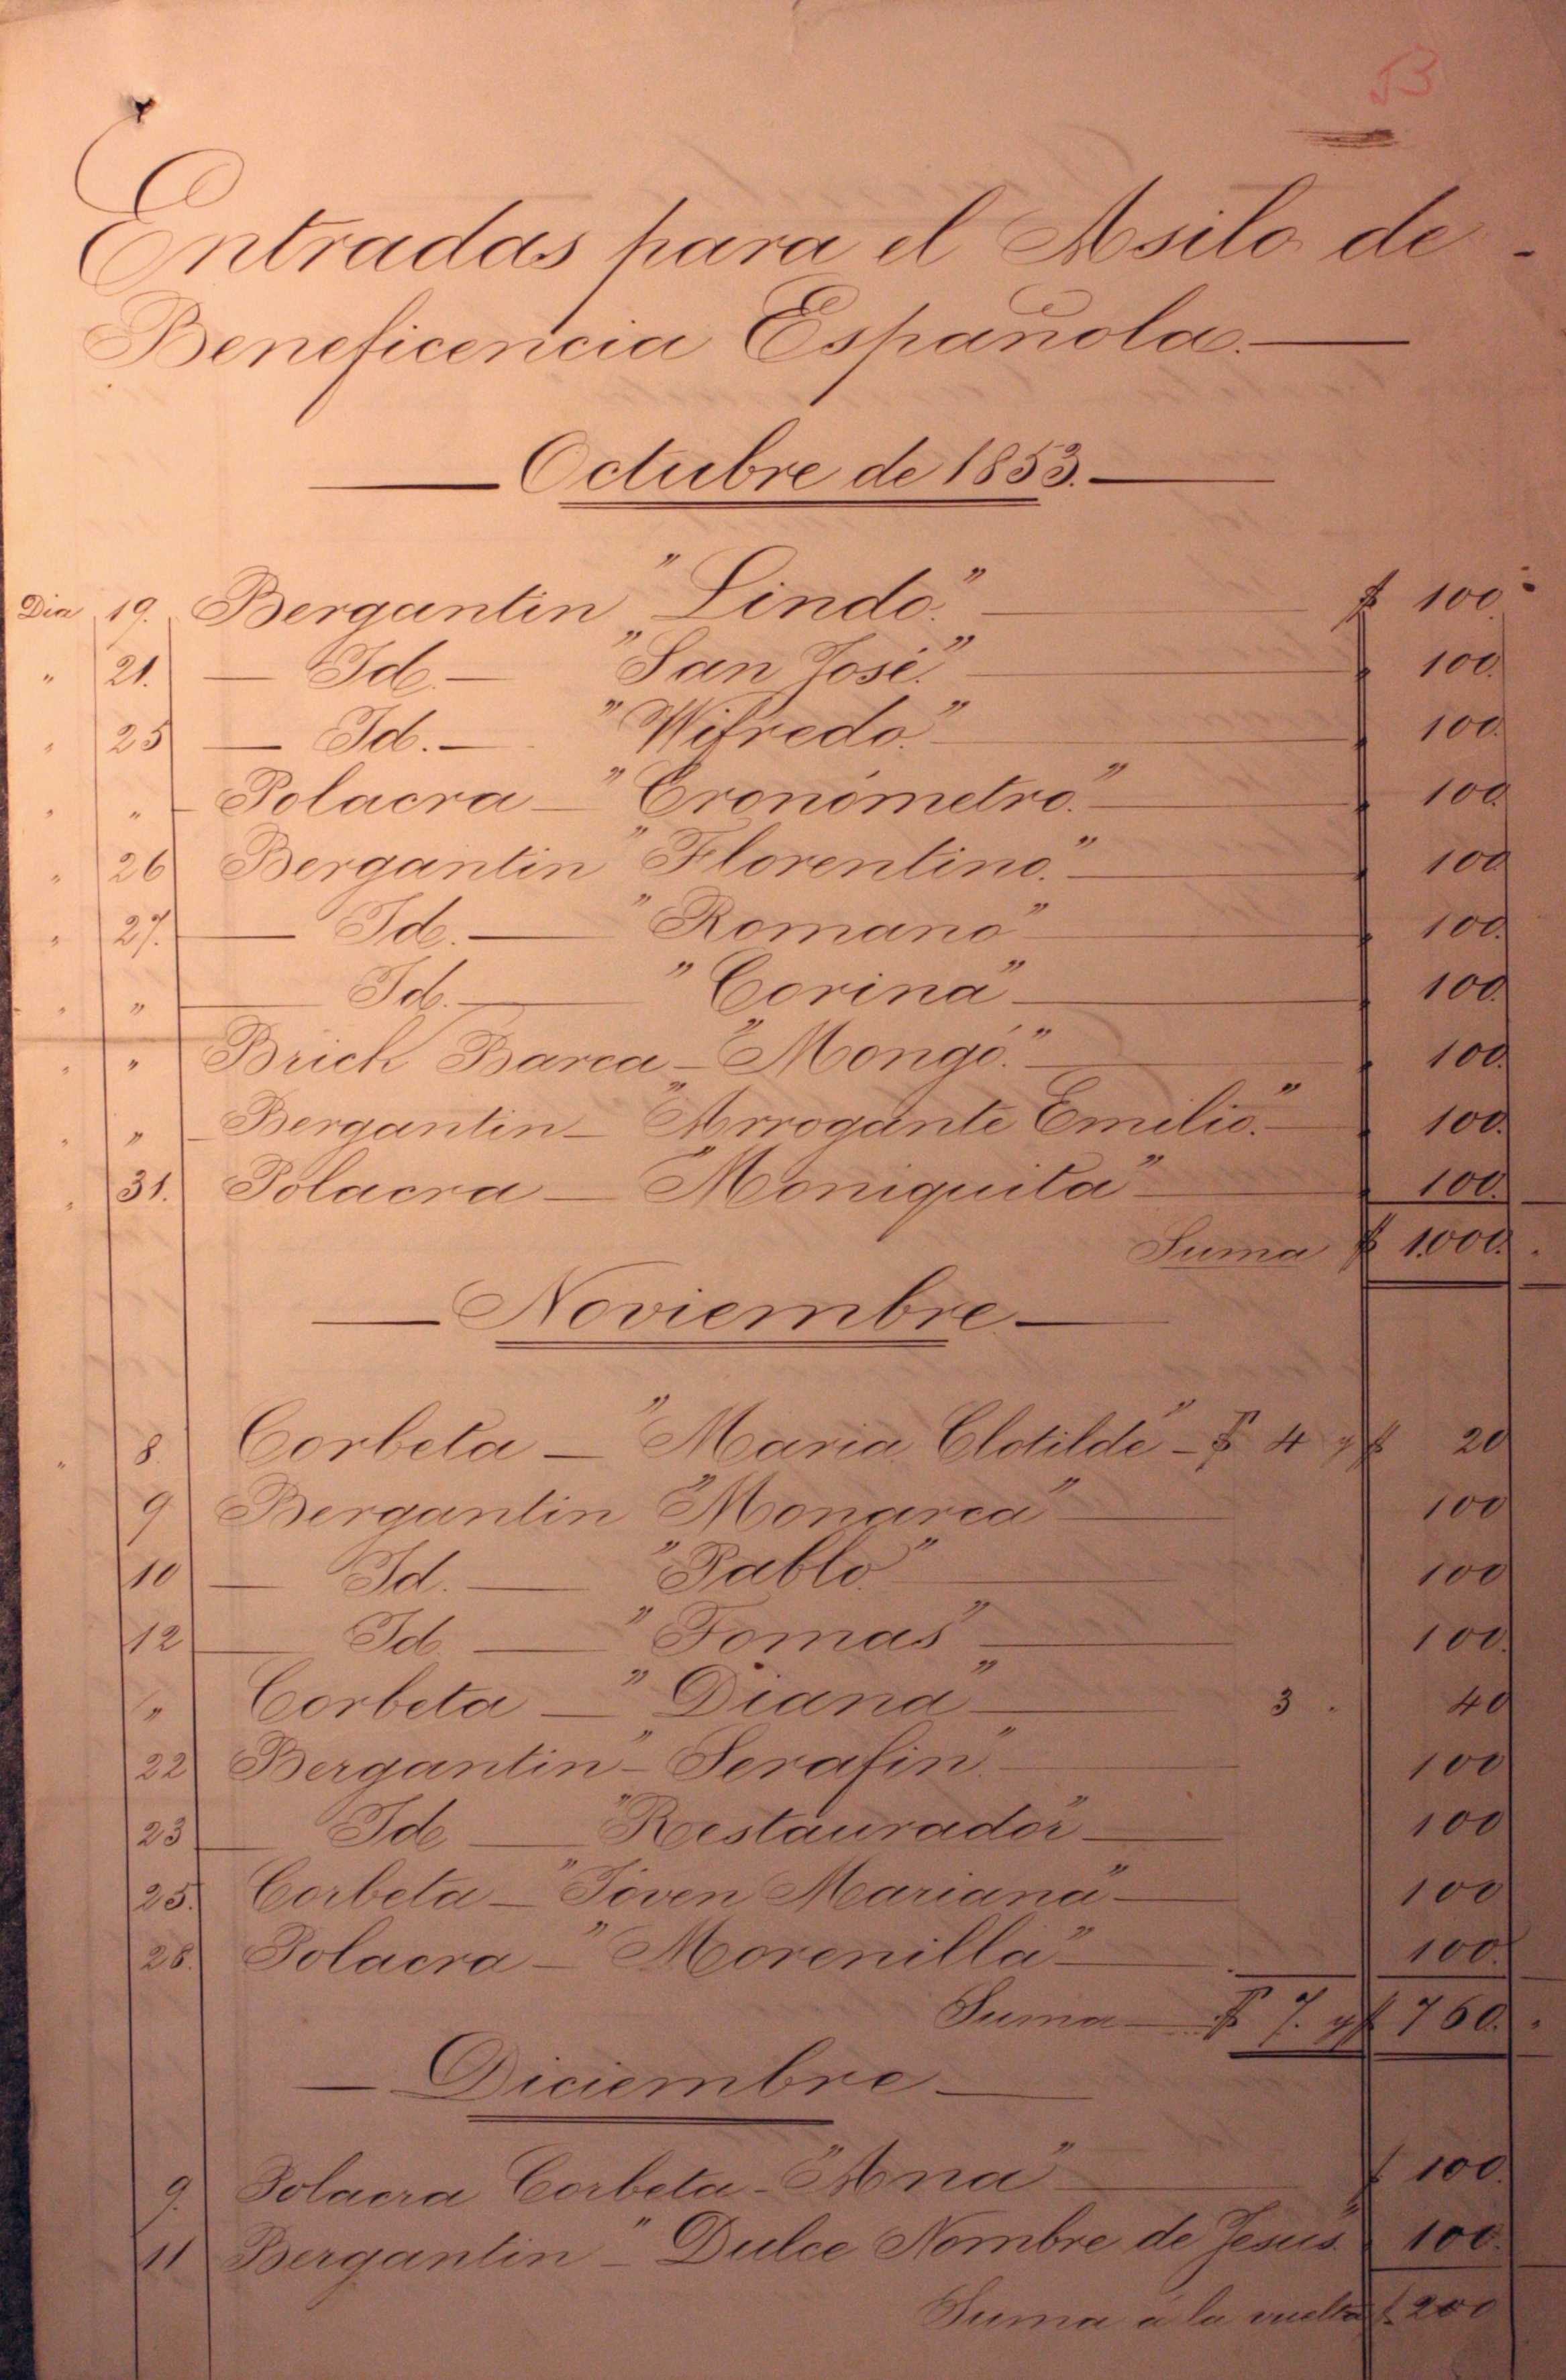 53
Entradas para el Asilo de -
Beneficencia Española.
Octubre de 1853.
Dia 19. Bergantin "Lindo." $ 100.
" 21. — Id. — "San José." 100.
" 25 — Id. — "Wifredo." 100.
" " — Polacra — "Cronómetro." 100.
" 26 Bergantin "Florentino." 100
" 27. — Id. — "Romano" 100.
" " — Id. — "Corina" 100.
" " Brick Barca — "Mongó." 100.
" " — Bergantin — "Arrogante Emilio." 100.
" 31. Polacra — "Moniquita" 100.
Suma $ 1.000.
— Noviembre —
" 8. Corbeta — "Maria Clotilde" — $ 4 y $ 20
9 Bergantin "Monarca" 100
10 — Id. — "Pablo." 100
12 — Id. — "Tomas" 100.
" Corbeta — "Diana" 3 . 40
22 Bergantin — "Serafin." 100
23 — Id — "Restaurador" 100
25. Corbeta — "Jóven Mariana" 100
26. Polacra — "Morenilla" 100.
Suma — $ 7. y $ 760.
— Diciembre —
9. Polacra Corbeta — "Ana" $ 100.
11 Bergantin — "Dulce Nombre de Jesus" 100.
Suma á la vuelta $ 200